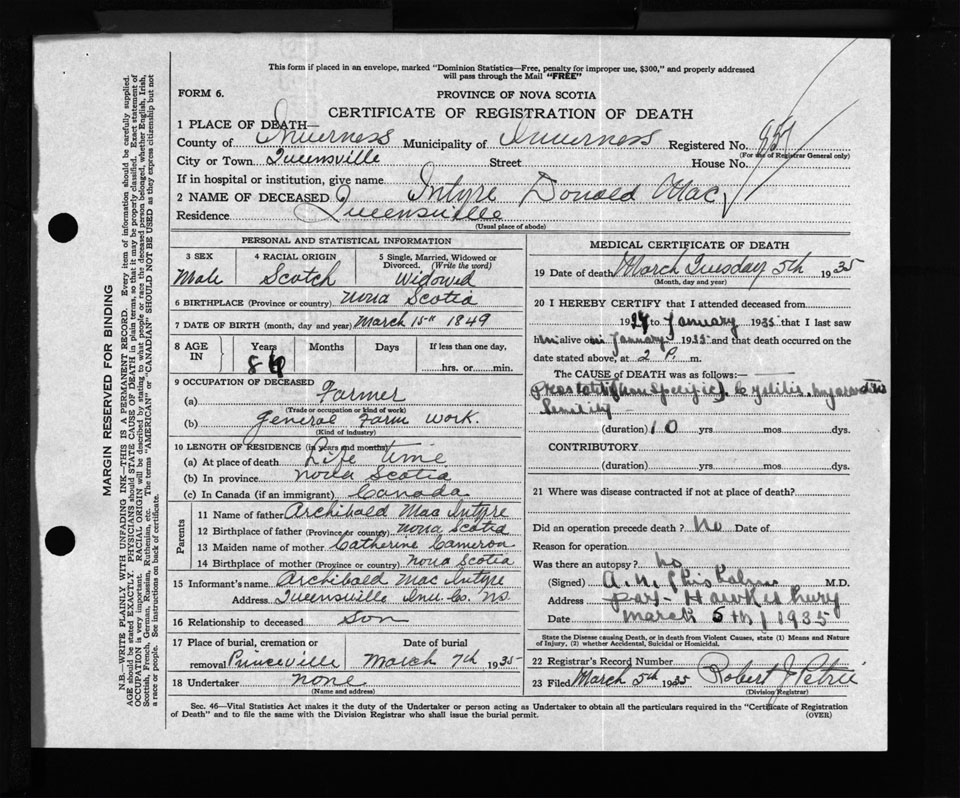 This form if placed in an envelope, marked "Dominion Statistics—Free, penalty for improper use, $300," and properly addressed
will pass through the Mail "FREE"
FORM 6.
PROVINCE OF NOVA SCOTIA
CERTIFICATE OF REGISTRATION OF DEATH
1 PLACE OF DEATH—
County of Inverness Municipality of Inverness Registered No. 857
(For use of Registrar General only)
City or Town Queensville Street House No.
If in hospital or institution, give name
2 NAME OF DECEASED Intyre Donald Mac
Residence Queensville
(Usual place of abode)
PERSONAL AND STATISTICAL INFORMATION
3 SEX 4 RACIAL ORIGIN 5 Single, Married, Widowed or
Divorced. (Write the word)
Male Scotch Widowed
6 BIRTHPLACE (Province or country) Nova Scotia
7 DATE OF BIRTH (month, day and year) March 15th 1849
8 AGE IN Years Months Days If less than one day,
hrs. or min.
9 OCCUPATION OF DECEASED
(a) Farmer
(Trade or occupation or kind of work)
(b) General Farm work.
(Kind of industry)
10 LENGTH OF RESIDENCE (in years and months)
(a) At place of death Life Time
(b) In province Nova Scotia
(c) In Canada (if an immigrant) Canada
Parents
11 Name of father Archibald Mac Intyre
12 Birthplace of father (Province or country) Nova Scotia
13 Maiden name of mother Catherine Cameron
14 Birthplace of mother (Province or country) Nova Scotia
15 Informant's name Archibald Mac Intyre
Address Queensville Inv. Co. NS.
16 Relationship to deceased Son
17 Place of burial, cremation or Date of burial
removal Princeville March 7th 1935
18 Undertaker none
(Name and address)
MEDICAL CERTIFICATE OF DEATH
19 Date of death March Tuesday 5th 1935
(Month, day and year)
20 I HEREBY CERTIFY that I attended deceased from
to January 1935 that I last saw
him alive on January 1935 and that death occurred on the
date stated above, at 2 P. m.
The CAUSE of DEATH was as follows:
Prostatitis (non specific). Cystitis.
Senility
(duration) 10 yrs. mos. dys.
CONTRIBUTORY
(duration) yrs. mos. dys.
21 Where was disease contracted if not at place of death?
Did an operation precede death? No Date of
Reason for operation
Was there an autopsy? No
(Signed) M.D.
Address Hawkesbury
Date March 5th / 1935
State the Disease causing Death, or in death from Violent Causes, state (1) Means and Nature
of Injury, (2) whether Accidental, Suicidal or Homicidal.
22 Registrar's Record Number
23 Filed March 5th 1935 Robert J Petrie
(Division Registrar)
Sec. 46—Vital Statistics Act makes it the duty of the Undertaker or person acting as Undertaker to obtain all the particulars required in the "Certificate of Registration
of Death" and to file the same with the Division Registrar who shall issue the burial permit.
(OVER)
MARGIN RESERVED FOR BINDING
N.B.—WRITE PLAINLY WITH UNFADING INK—THIS IS A PERMANENT RECORD. Every item of information should be carefully supplied.
AGE should be stated EXACTLY. PHYSICIANS should STATE CAUSE OF DEATH in plain terms, so that it may be properly classified. Exact statement of
OCCUPATION is very important. RACIAL ORIGIN will be described by stating to what people or race the deceased person belonged, whether English, Irish,
Scottish, French, German, Russian, Ruthenian, etc. The terms "AMERICAN" or "CANADIAN" SHOULD NOT BE USED as they express citizenship but not
a race or people. See instructions on back of certificate.